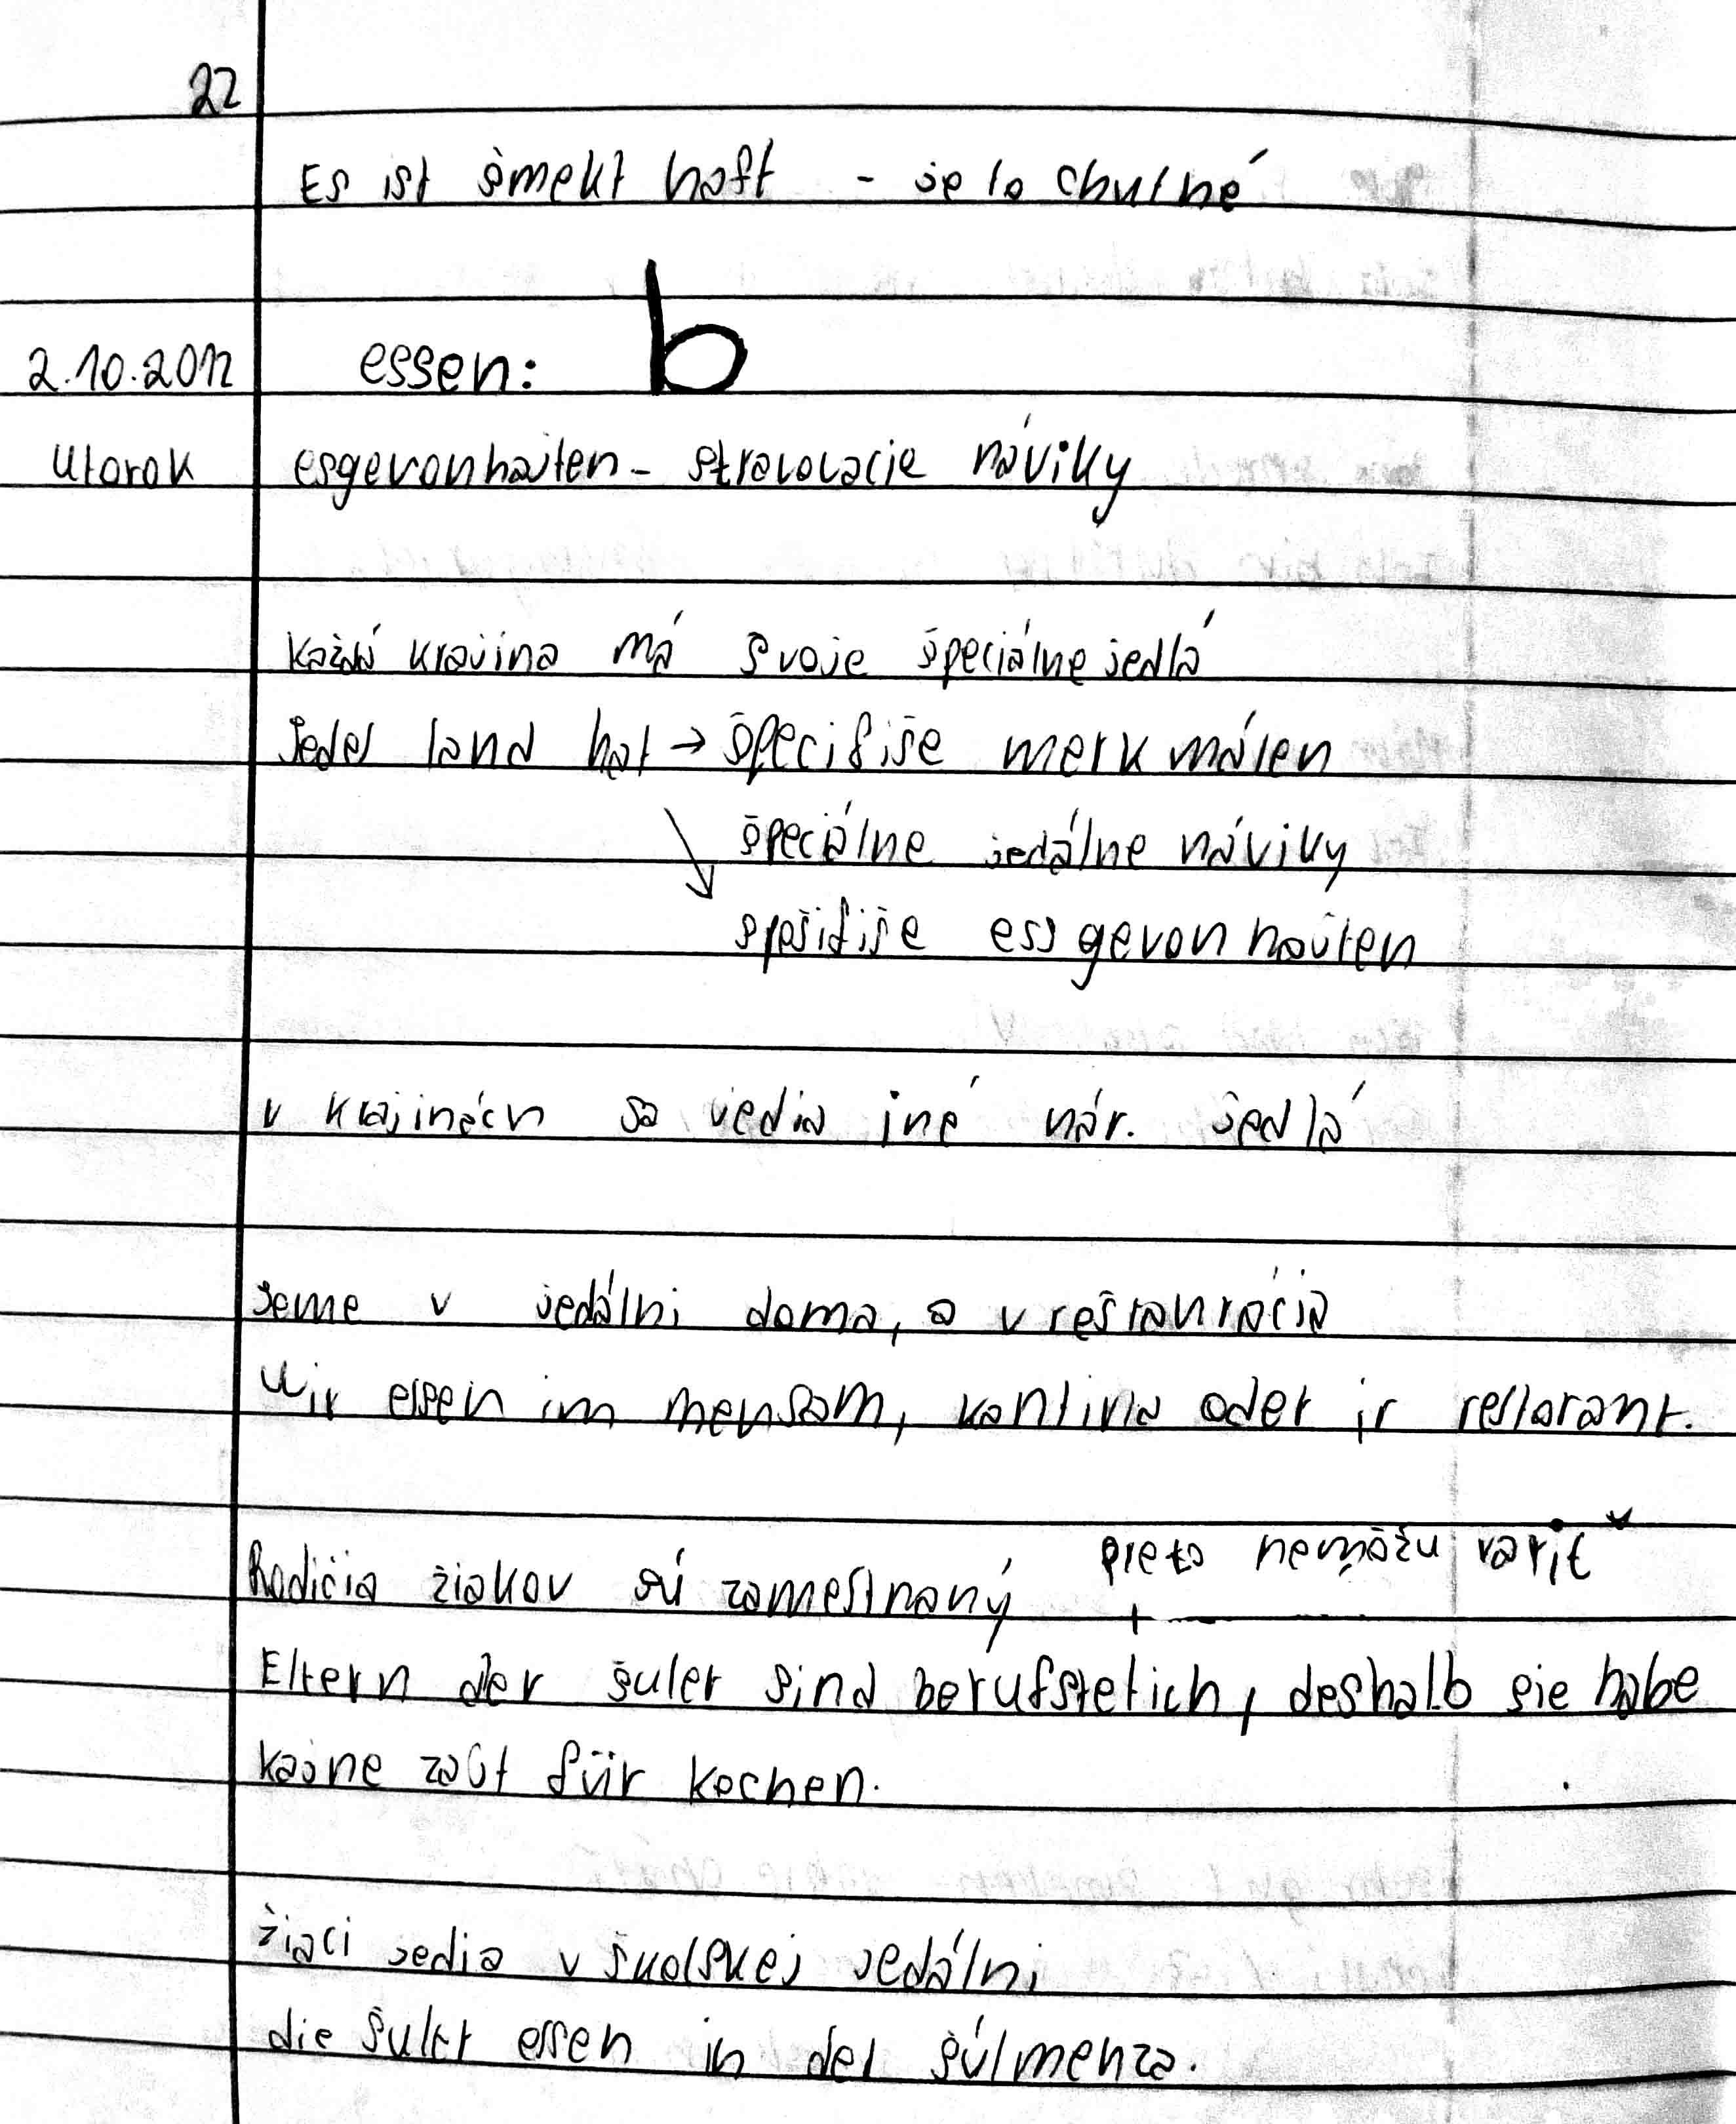 22
Es ist šmekt haft - je to chutné
2.10.2012 essen: b
Utorok esgevonhaiten - stravovacie náviky
každá krajina má svoje špeciálne jedlá
Jedes land hat → špecifiše merk málen
↘ špeciálne jedálne náviky
spešifiše ess gevon haiten
v krajinách sa jedia iné nár. jedlá
Jeme v jedálni doma, a v reštaurácia
Wir essen im mensam, kantina oder ir restorant.
Rodičia žiakov sú zamestnaný preto nemôžu variť
Eltern der šuler sind berufstetich, deshalb sie habe
kajne zajt für kochen.
žiaci jedia v školskej jedálni
die šuler essen in der šúlmenza.